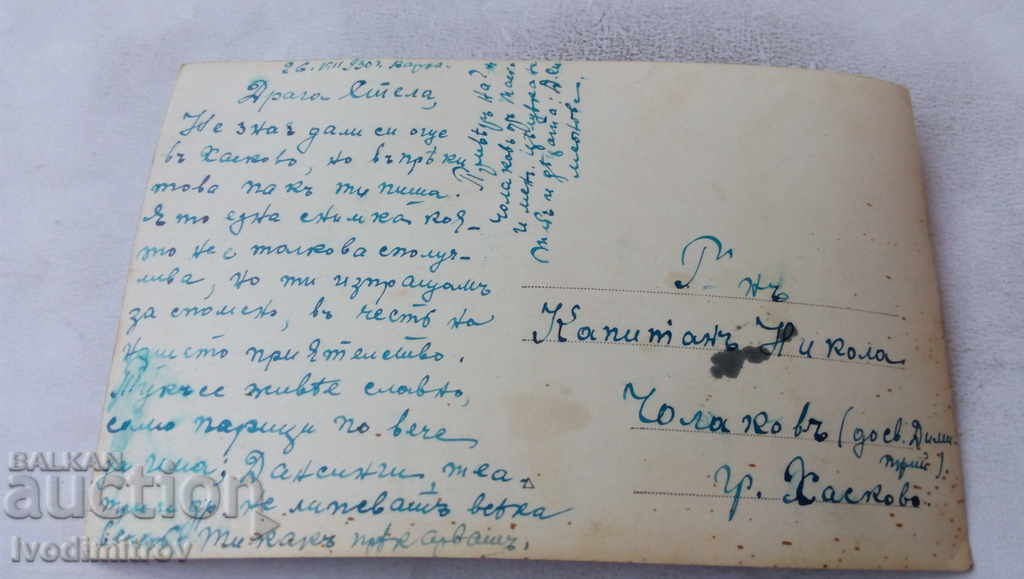 26. VIII 930 г. Варна.
Драга Стела,
Не знач дали си още
въ Хасково, но въпрѣки
това пакъ ти пиша.
Ято една снимка коя-
то не е толкова сполуч-
лива, но ти изпращамъ
за спомень, въ честь на
нашето приятелство.
Тукъ се живѣе славно,
само парици по вече
да има; Дансинги, теа-
три да не липсватъ всѣка
вечерь. Ти какъ прѣкарвашъ.
Чолаковъ
и
и дѣцата:
Г-нъ
Капитанъ Никола
Чолаковъ (до св. Дими-
трий).
гр. Хасково
BALKAN
auction
Ivodimitrov